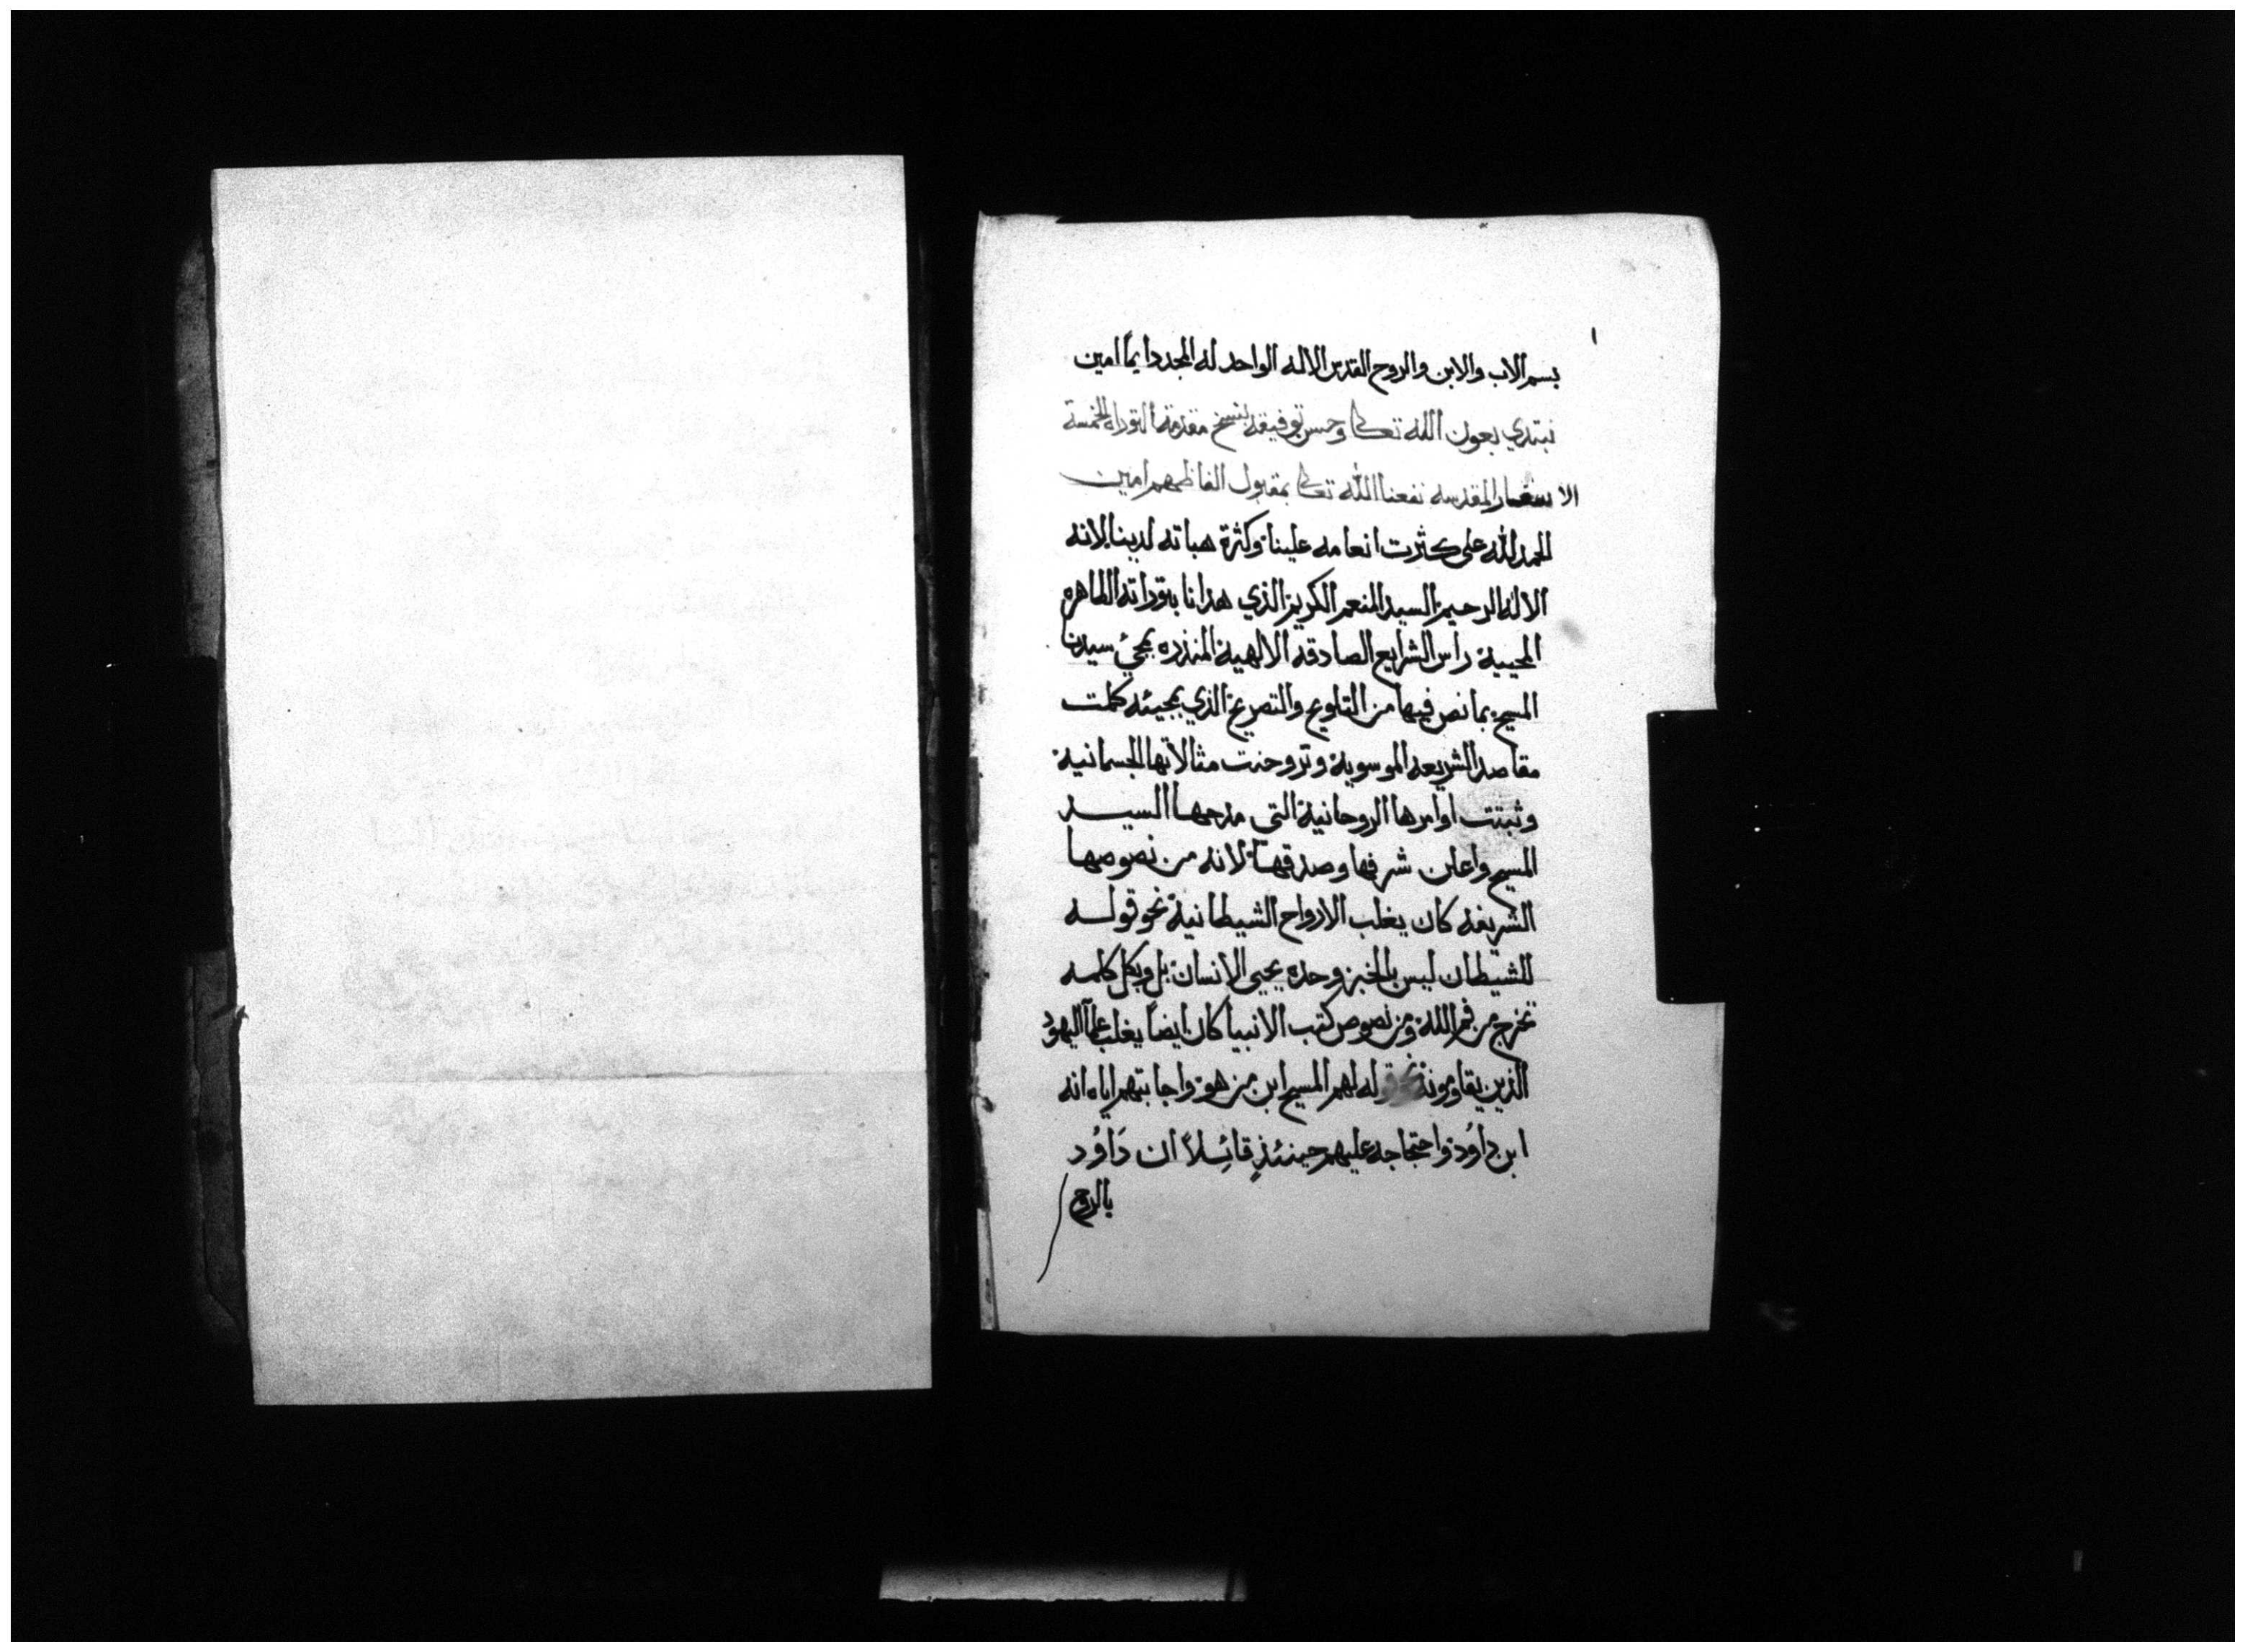 ١
بسم الاب والابن والروح القدس الاله الواحد له المجد دايماً امين
نبتدي بعون الله تعالى وحسن توفيقه بنسخ مقدمة التوراه الخمسة
الاسفار المقدسه نفعنا الله تعالى بمقبول الفاظهم امين
الحمد لله على كثرت انعامه علينا وكثرة هباته لدينا لانه
الاله الرحيم السيد المنعم الكريم الذي هدانا بتوراته الطاهره
المحيية راس الشرايع الصادقه الالهية المنذره بمجئ سيدنا
المسيح بما نص فيها من التلويح والتصريح الذي بمجيئه كملت
مقاصد الشريعه الموسوية وتروحنت مثالاتها الجسمانية
وثبتت اوامرها الروحانية التي مدحها السيد
المسيح واعلن شرفها وصدقها لانه من نصوصها
الشريفه كان يغلب الارواح الشيطانية نحو قوله
للشيطان ليس بالخبز وحده يحيى الانسان بل وبكل كلمه
تخرج من فم الله ومن نصوص كتب الانبيا كان ايضاً يغلب علماً اليهود
الذين يقاومونه نحو قوله لهم المسيح ابن من هو واجابتهم اياه انه
ابن داوُد واحتجاجه عليهم حينئذٍ قائِلاً ان دَاوُد
بالروح